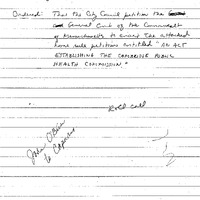 Ordered: That the City Council petition the
General Court of the Commonwealth
of Massachusetts to enact the attached
home rule petition entitled "AN ACT
ESTABLISHING THE CAMBRIDGE PUBLIC
HEALTH COMMISSION."
Roll call
John O'Brien
to